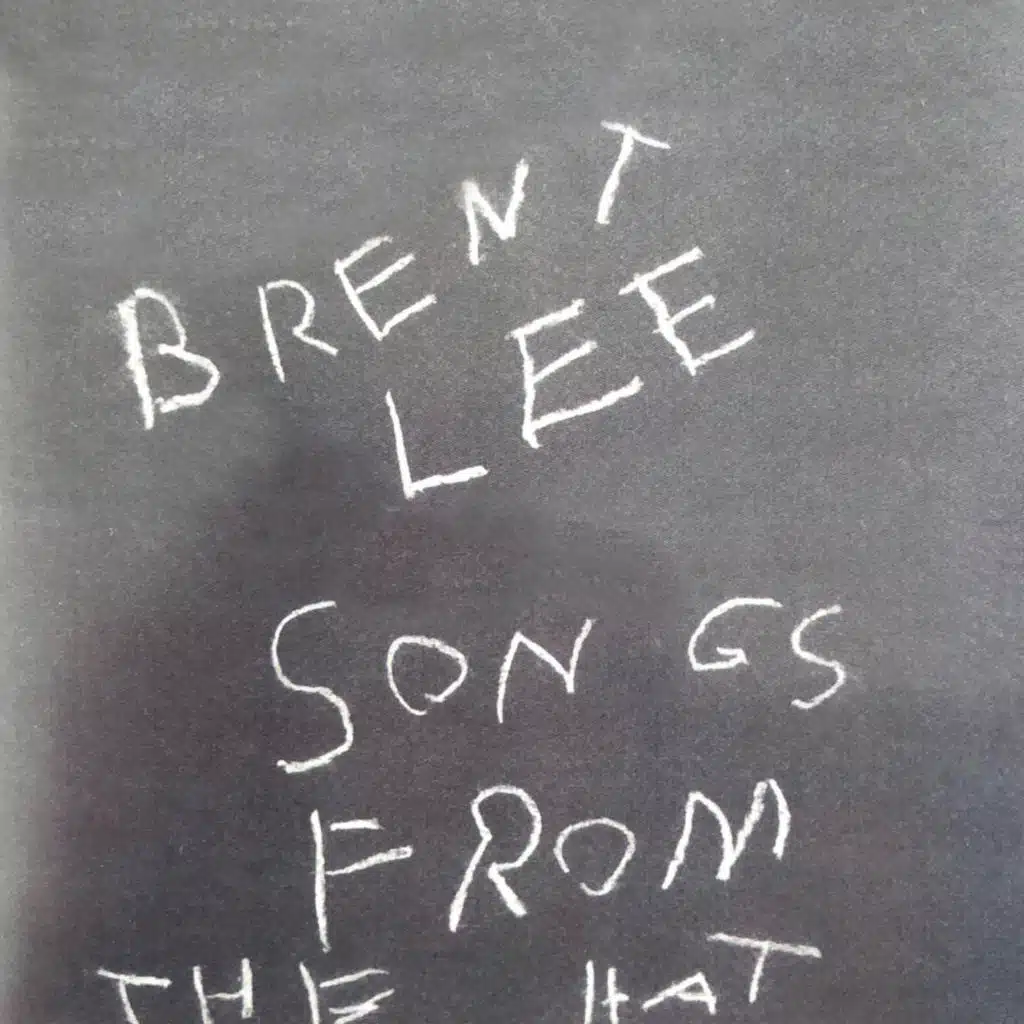 BRENT
LEE
SONGS
FROM
THE HAT